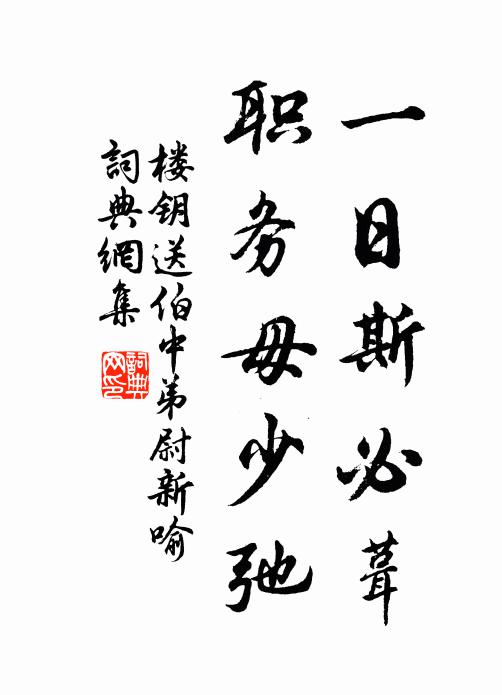 一日斯必葺
职务毋少弛
楼钥送伯中弟尉新喻
詞典網集
詞典网印